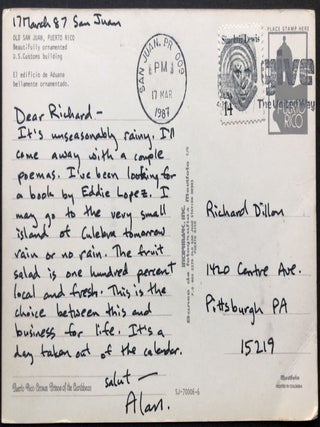 17 March 87 San Juan
OLD SAN JUAN, PUERTO RICO
Beautifully ornamented
U.S. Customs building
El edificio de Aduana
bellamente ornamentado.
SAN JUAN, PR 009
PM
17 MAR
1987
Sinclair Lewis
USA
14
PLACE STAMP HERE
give
The United Way
PUERTO RICO
Dear Richard —
It's unseasonably rainy. I'll
come away with a couple
poemas. I've been looking for
a book by Eddie Lopez. I
may go to the very small
island of Culebra tomorrow
rain or no rain. The fruit
salad is one hundred percent
local and fresh. This is the
choice between this and
business for life. It's a
day taken out of the calendar.
salut —
Alan.
Richard Dillon
1420 Centre Ave.
Pittsburgh PA
15219
Puerto Rico
of the Caribbean
SJ-70006-6
PRINTED IN COLOMBIA